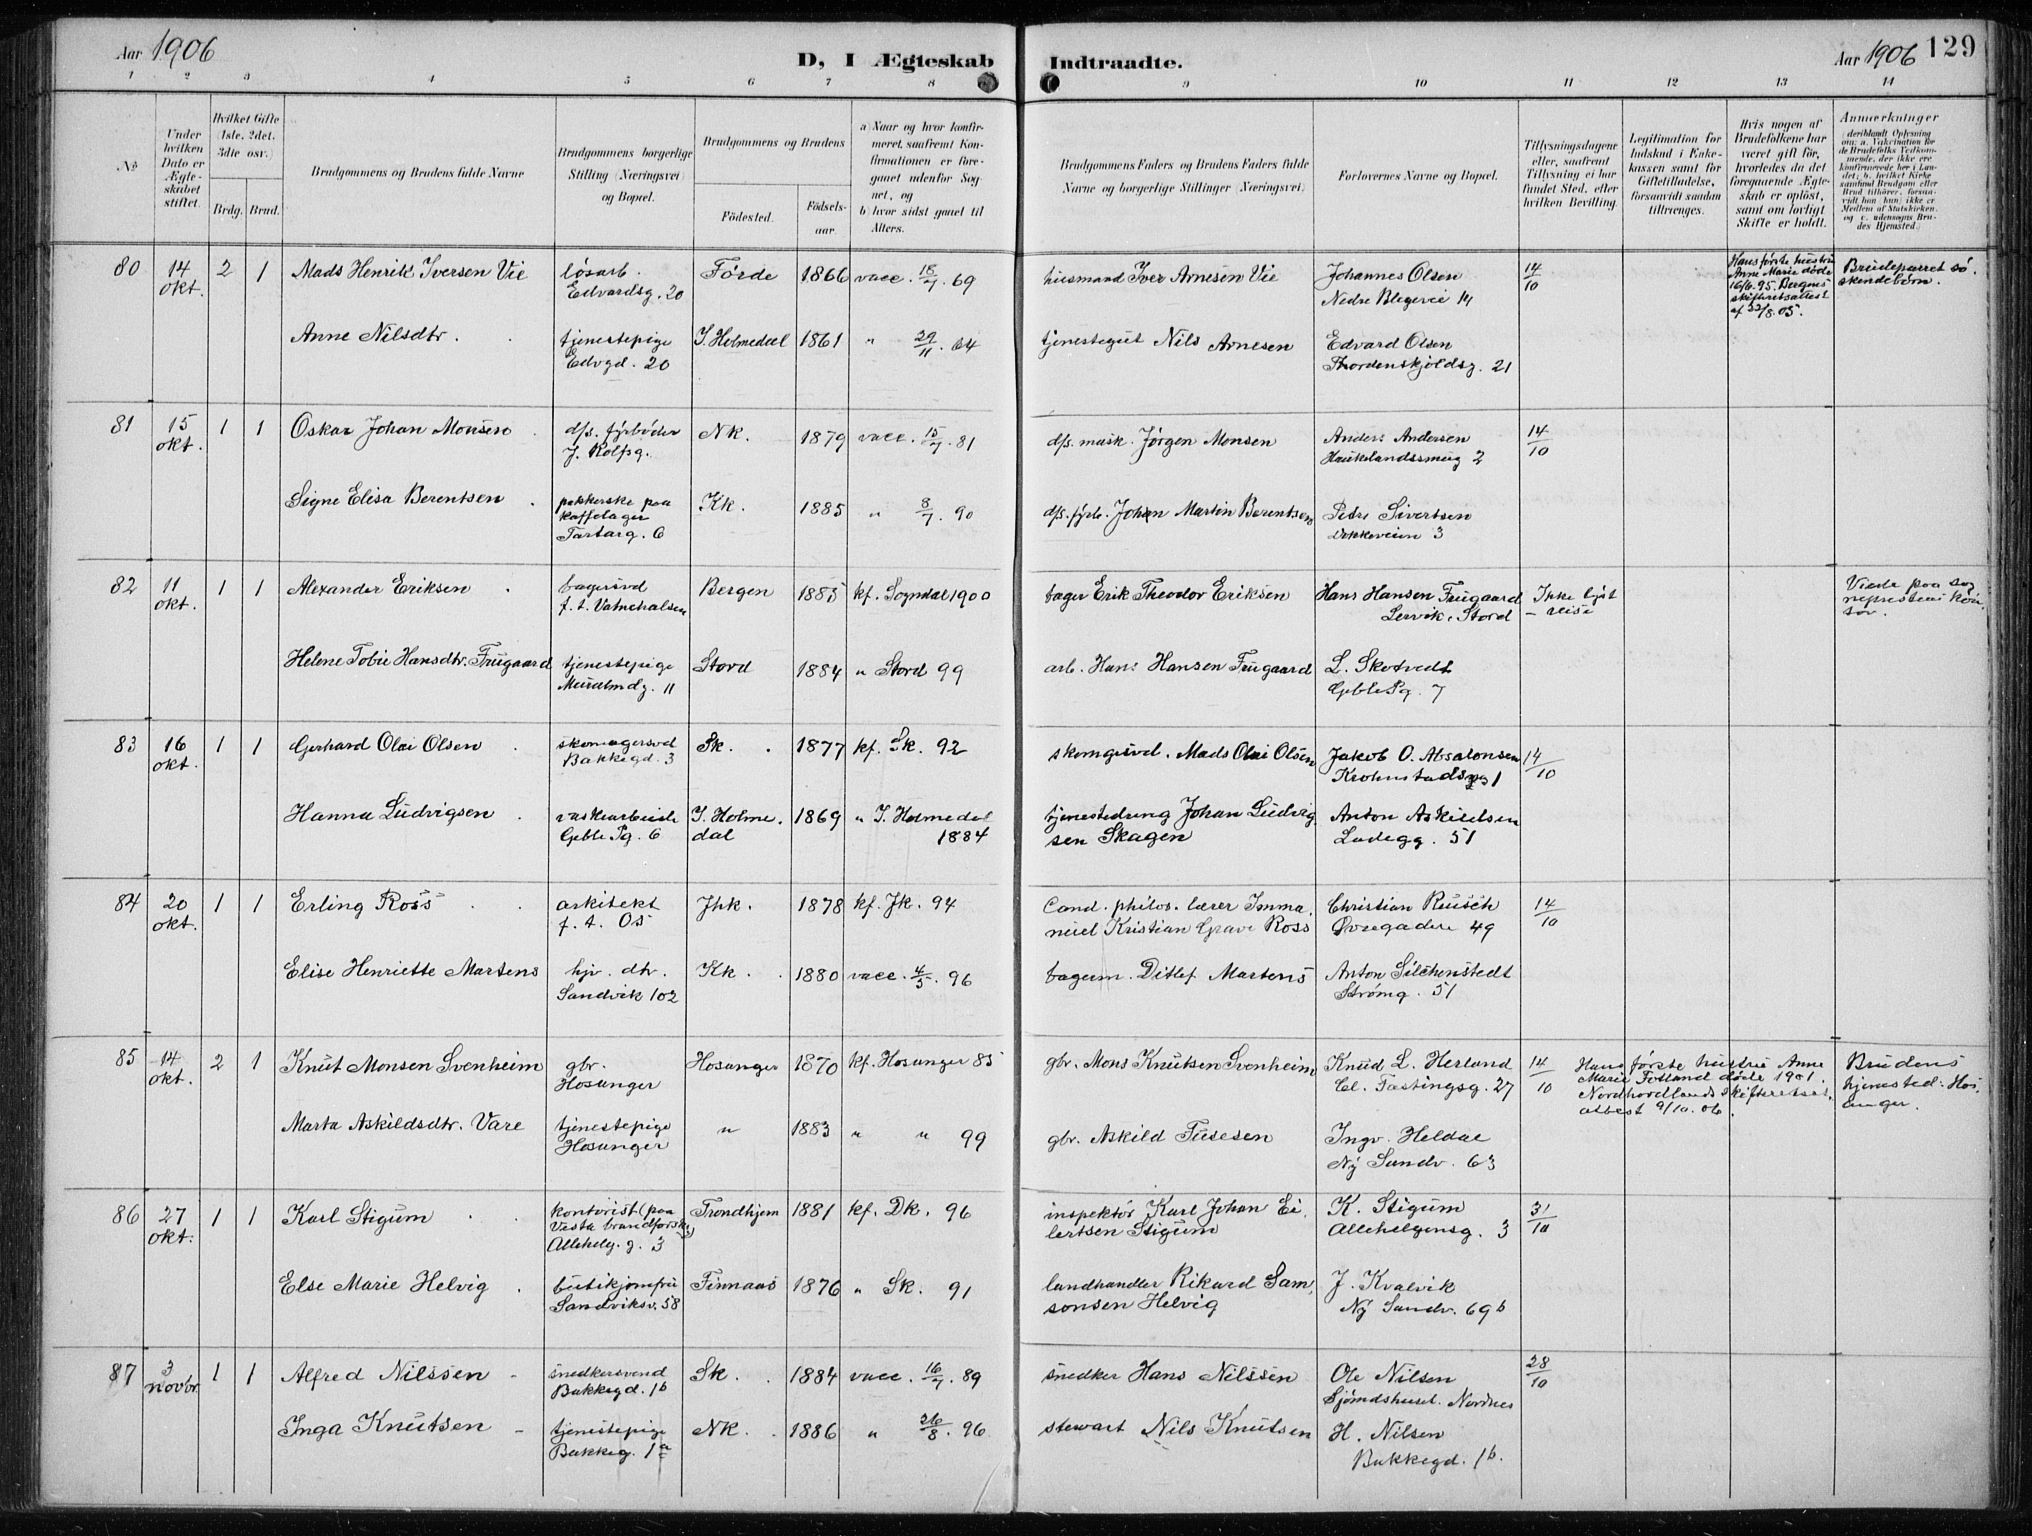 Aar 1906
D, I Ægteskab Indtraadte.
Aar 1906 129
1 2 3 4 5 6 7 8 9 10 11 12 13 14
No
Under hvilken Dato er Ægteskabet stiftet.
Hvilket Gifte (1ste, 2det, 3die osv.)
Brdg. Brud.
Brudgommens og Brudens fulde Navne
Brudgommens borgerlige Stilling (Næringsvei) og Bopæl.
Brudgommens og Brudens
Födested.
Födselsaar.
a) Naar og hvor konfirmeret, saafremt Konfirmationen er foregaaet udenfor Sognet, og
b) hvor sidst gaaet til Alters.
Brudgommens Faders og Brudens Faders fulde Navne og borgerlige Stillinger (Næringsvei)
Forlovernes Navne og Bopæl.
Tillysningsdagene eller, saafremt Tillysning ei har fundet Sted, efter hvilken Bevilling.
Legitimation for Indskud i Enkekassen samt for Giftetilladelse, forsaavidt saadan tiltrænges.
Hvis nogen af Brudefolkene har været gift för, hvorledes da det foregaaende Ægteskab er oplöst, samt om lovligt Skifte er holdt.
Anmærkninger
80 14 okt. 2 1 Mads Henrik Iversen Vie løsarb. Edvardsg. 20 Förde 1866 vacc. 18/7 69 husmand Iver Arnesen Vie Johannes Olsen Nedre Blegevei 14 14/10 Hans første hustru Anne Marie døde 16/6. 95. Bergens skifteretsattest af 22/8.05. Brudeparret søskendebörn.
Anne Nilsdtr. tjenestepige Edvgd. 20 I. Holmedal 1861 " 29/11. 64 tjenestegut Nils Arnesen Edvard Olsen Thordenskjoldsg. 21
81 15 okt. 1 1 Oskar Johan Monsen d/s. fyrbøder J. Rolfsg. NK. 1879 vacc. 15/7. 81 d/s. mask. Jörgen Monsen Anders Andersen Haukelandssmug 2 14/10
Signe Elisa Berentsen pakkerske paa kaffelager Tartarg. 6 Kk. 1885 " 8/7. 90 d/s. fyrb. Johan Martin Berentsen Peder Sivertsen Dokkeveien 3
82 11 okt. 1 1 Alexander Eriksen bagersvd f. t. Vatnehalsen Bergen 1885 kf. Sogndal 1900 bager Erik Theodor Eriksen Hans Hansen Frugaard Lervik, Stord Ikke lyst – reise Viede paa
Helene Tobie Hansdtr. Frugaard tjenestepige Muralmdg. 11 Stord 1884 " Stord 99 arb. Hans Hansen Frugaard L. Skotvedt Geble Pg. 7
83 16 okt. 1 1 Gerhard Olai Olsen skomagersvd Bakkegd. 3 Sk. 1877 kf. Sk. 92 skomgrsvd. Mads Olai Olsen Jakob O. Absalonsen Krohnstadsvg 1 14/10
Hanna Ludvigsen vaskearbeide Geble Pg. 6 I. Holmedal 1869 " I. Holmedal 1884 tjenestedreng Johan Ludvigsen Skagen Anton Askildsen Ladegg. 51
84 20 okt. 1 1 Erling Ross arkitekt f. t. Os Jhk. 1878 kf. Jk. 94 Cand. philos. lærer Immanuel Kristian Grave Ross Christian Reusch Øvregaden 49 14/10
Elise Henriette Martens hjv. dtr. Sandvik 102 Kk. 1880 vacc. 4/5. 96 bagerm. Ditlef Martens Anton Silchenstedt Strömg. 51
85 14 okt. 2 1 Knut Monsen Svenheim gbr. Hosanger Hosanger 1870 kf. Hosanger 85 gbr. Mons Knutsen Svenheim Knud L. Herland Cl. Fastingsg. 27 14/10 Hans første hustru Anne Marie Fotland døde 1901. Nordhordlands skifteretsattest 9/10. 06. Brudens hjemsted: Hosanger.
Marta Askildsdtr. Vare tjenestepige Hosanger " 1883 " " 99 gbr. Askild Tufesen Ingv. Heldal Ny Sandv. 63
86 27 okt. 1 1 Karl Stigum kontorist (paa Vesta brandforsk.) Allehelg. g. 3 Trondhjem 1881 kf. Dk. 96 inspektör Karl Johan Eilertsen Stigum K. Stigum Allehelgensg. 3 31/10
Else Marie Helvig butikjomfru Sandviksv. 58 Finnaas 1876 " Sk. 91 landhandler Rikard Samsonsen Helvig J. Kvalvik Ny Sandv. 69 b
87 3 novbr 1 1 Alfred Nilssen snedkersvend Bakkegd. 1b Sk. 1884 vacc. 16/7. 89 snedker Hans Nilssen Ole Nilsen Sjömdshuset. Nordnes 28/10
Inga Knutsen tjenestepige Bakkeg. 1a NK. 1886 " 26/8. 96 stewart Nils Knutsen H. Nilsen Bakkegd. 1b.